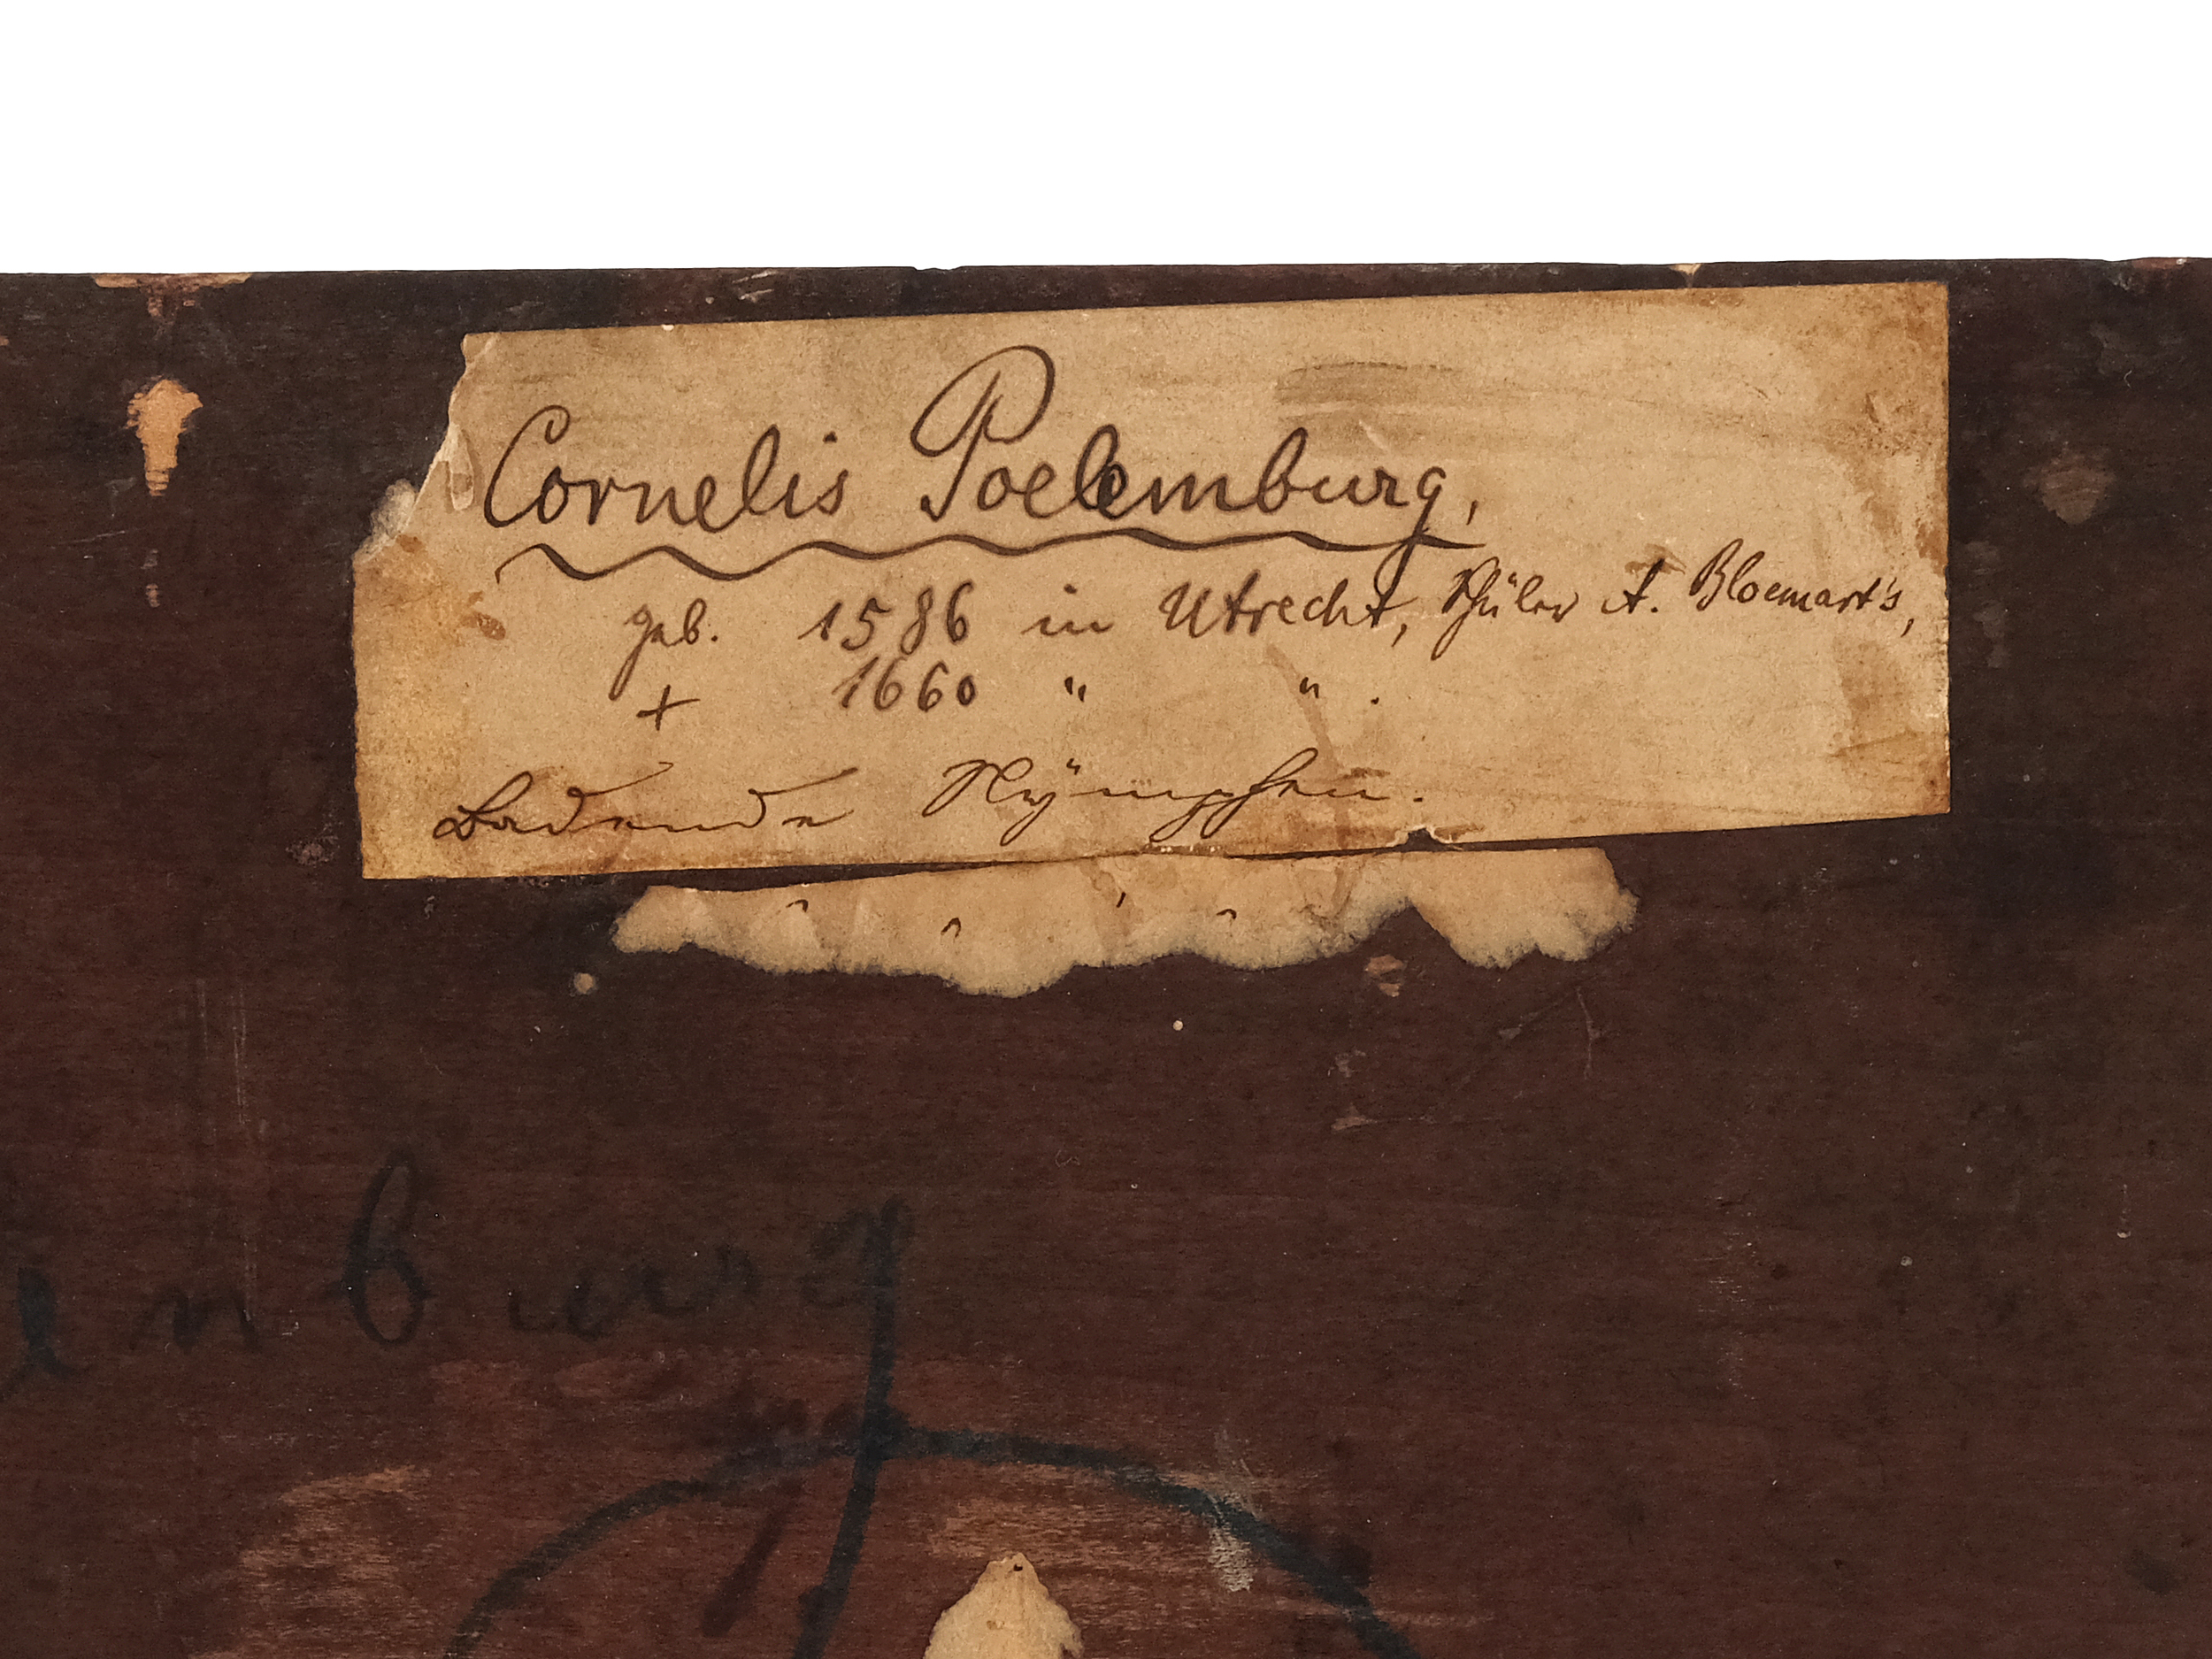 Cornelis Poelemburg,
geb. 1586 in Utrecht, Schüler A. Bloemart's,
+ 1660 " " .
Badende Nÿmphen.
enburg